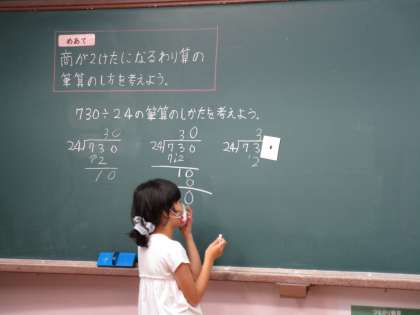 めあて
商が2けたになるわり算の
筆算のし方を考えよう。
730÷24の筆算のしかたを考えよう。
30
24)730
72
10
30
24)730
72
10
0
3
24)73
2